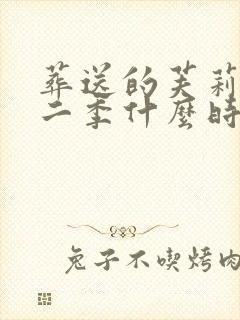 葬送的芙莉
二季什麼時
兔子不喫烤肉